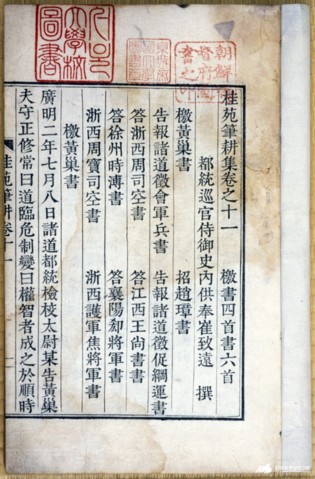 桂苑筆耕集卷之十一 檄書四首書六首
都統巡官侍御史內供奉崔致遠 撰
檄黃巢書 招趙璋書
告報諸道徵會軍兵書 告報諸道徵促綱運書
答浙西周司空書 答江西王尚書書
答徐州時溥書 答襄陽郄將軍書
浙西周寶司空書 浙西護軍焦將軍書
檄黃巢書
廣明二年七月八日諸道都統檢校太尉某告黃巢
夫守正修常曰道臨危制變曰權智者成之於順時
桂苑筆耕卷十一 一